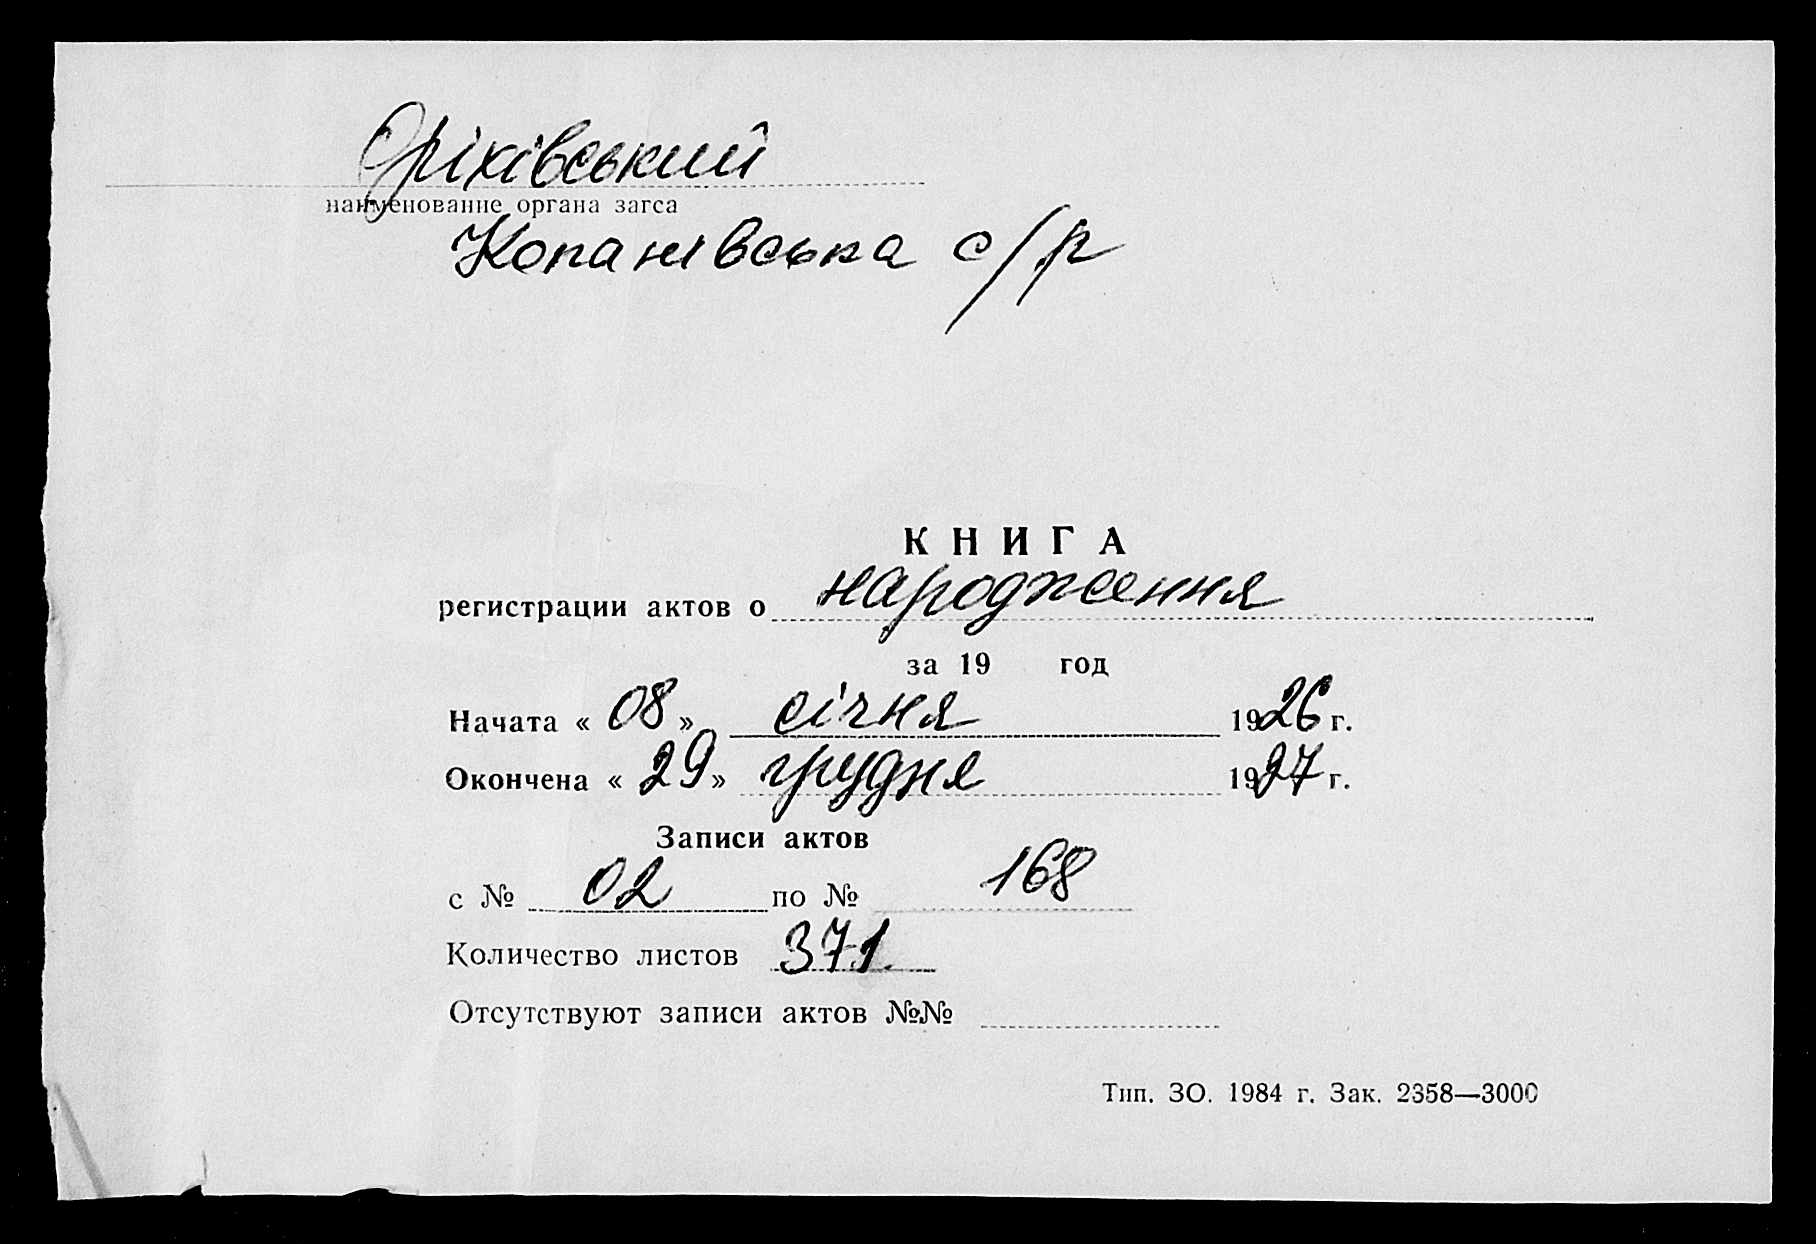 Оріхівський
наименование органа загса
Копанівська с/р
КНИГА
регистрации актов о народження
за 19 год
Начата « 08 » січня 1926 г.
Окончена « 29 » грудня 1927 г.
Записи актов
с № 02 по № 168
Количество листов 371
Отсутствуют записи актов №№
Тип. ЗО. 1984 г. Зак. 2358—3000